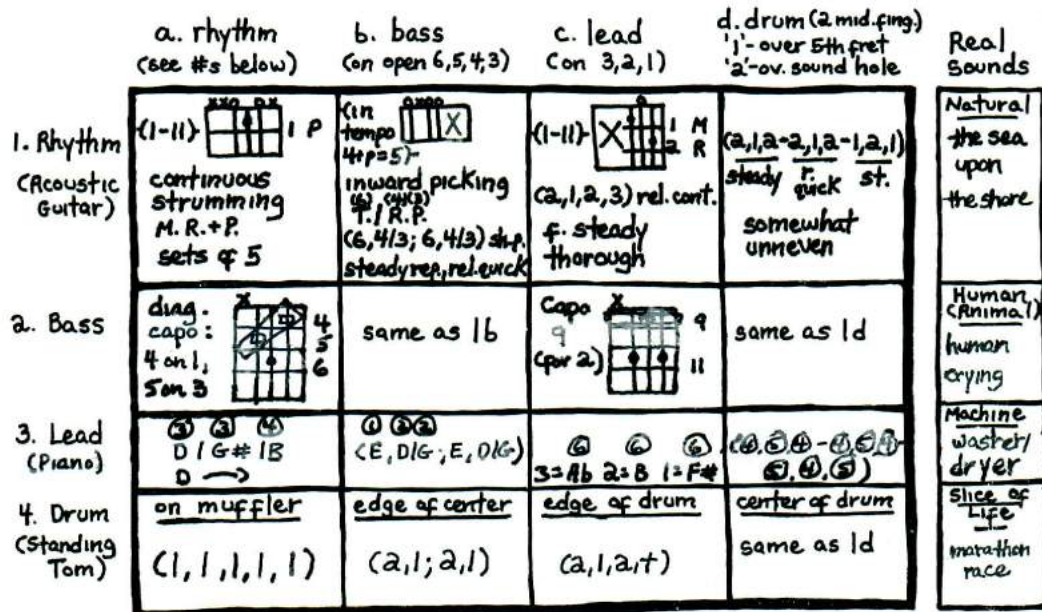 a. rhythm
(see #s below)
b. bass
(on open 6,5,4,3)
c. lead
(on 3,2,1)
d. drum (2 mid. fing.)
'1'- over 5th fret
'2'-ov. sound hole
Real
Sounds
1. Rhythm
(Acoustic
Guitar)
xxo ox
(1-11)
1 P
continuous
strumming
M. R. + P.
sets of 5
(in
tempo
4+P=5)-
oxoo
X
inward picking
(6) (4)(3)
T. / R. P.
(6,4/3; 6,4/3) sh.p.
steady rep., rel. quick
o
(1-11)
X
1 M
2 R
(2,1,2,3) rel. cont.
f. steady
thorough
(2,1,2-2,1,2-1,2,1)
steady r. quick st.
somewhat
uneven
Natural
the sea
upon
the shore
2. Bass
diag.
capo:
4 on 1,
5 on 3
x
4
5
6
same as 1b
Capo
9
(for 2)
x
9
11
same as 1d
Human
(Animal)
human
crying
3. Lead
(Piano)
③ ③ ④
D / G# / B
D →
① ② ②
(E, D/G; E, D/G)
⑥ ⑥ ⑥
3=Ab 2=B 1=F#
(④,⑤,④ - ④,⑤,④-
⑤,④,⑤)
Machine
washer/
dryer
4. Drum
(Standing
Tom)
on muffler
(1, 1, 1, 1, 1)
edge of center
(2,1; 2,1)
edge of drum
(2,1,2,+)
center of drum
same as 1d
Slice of
Life
marathon
race